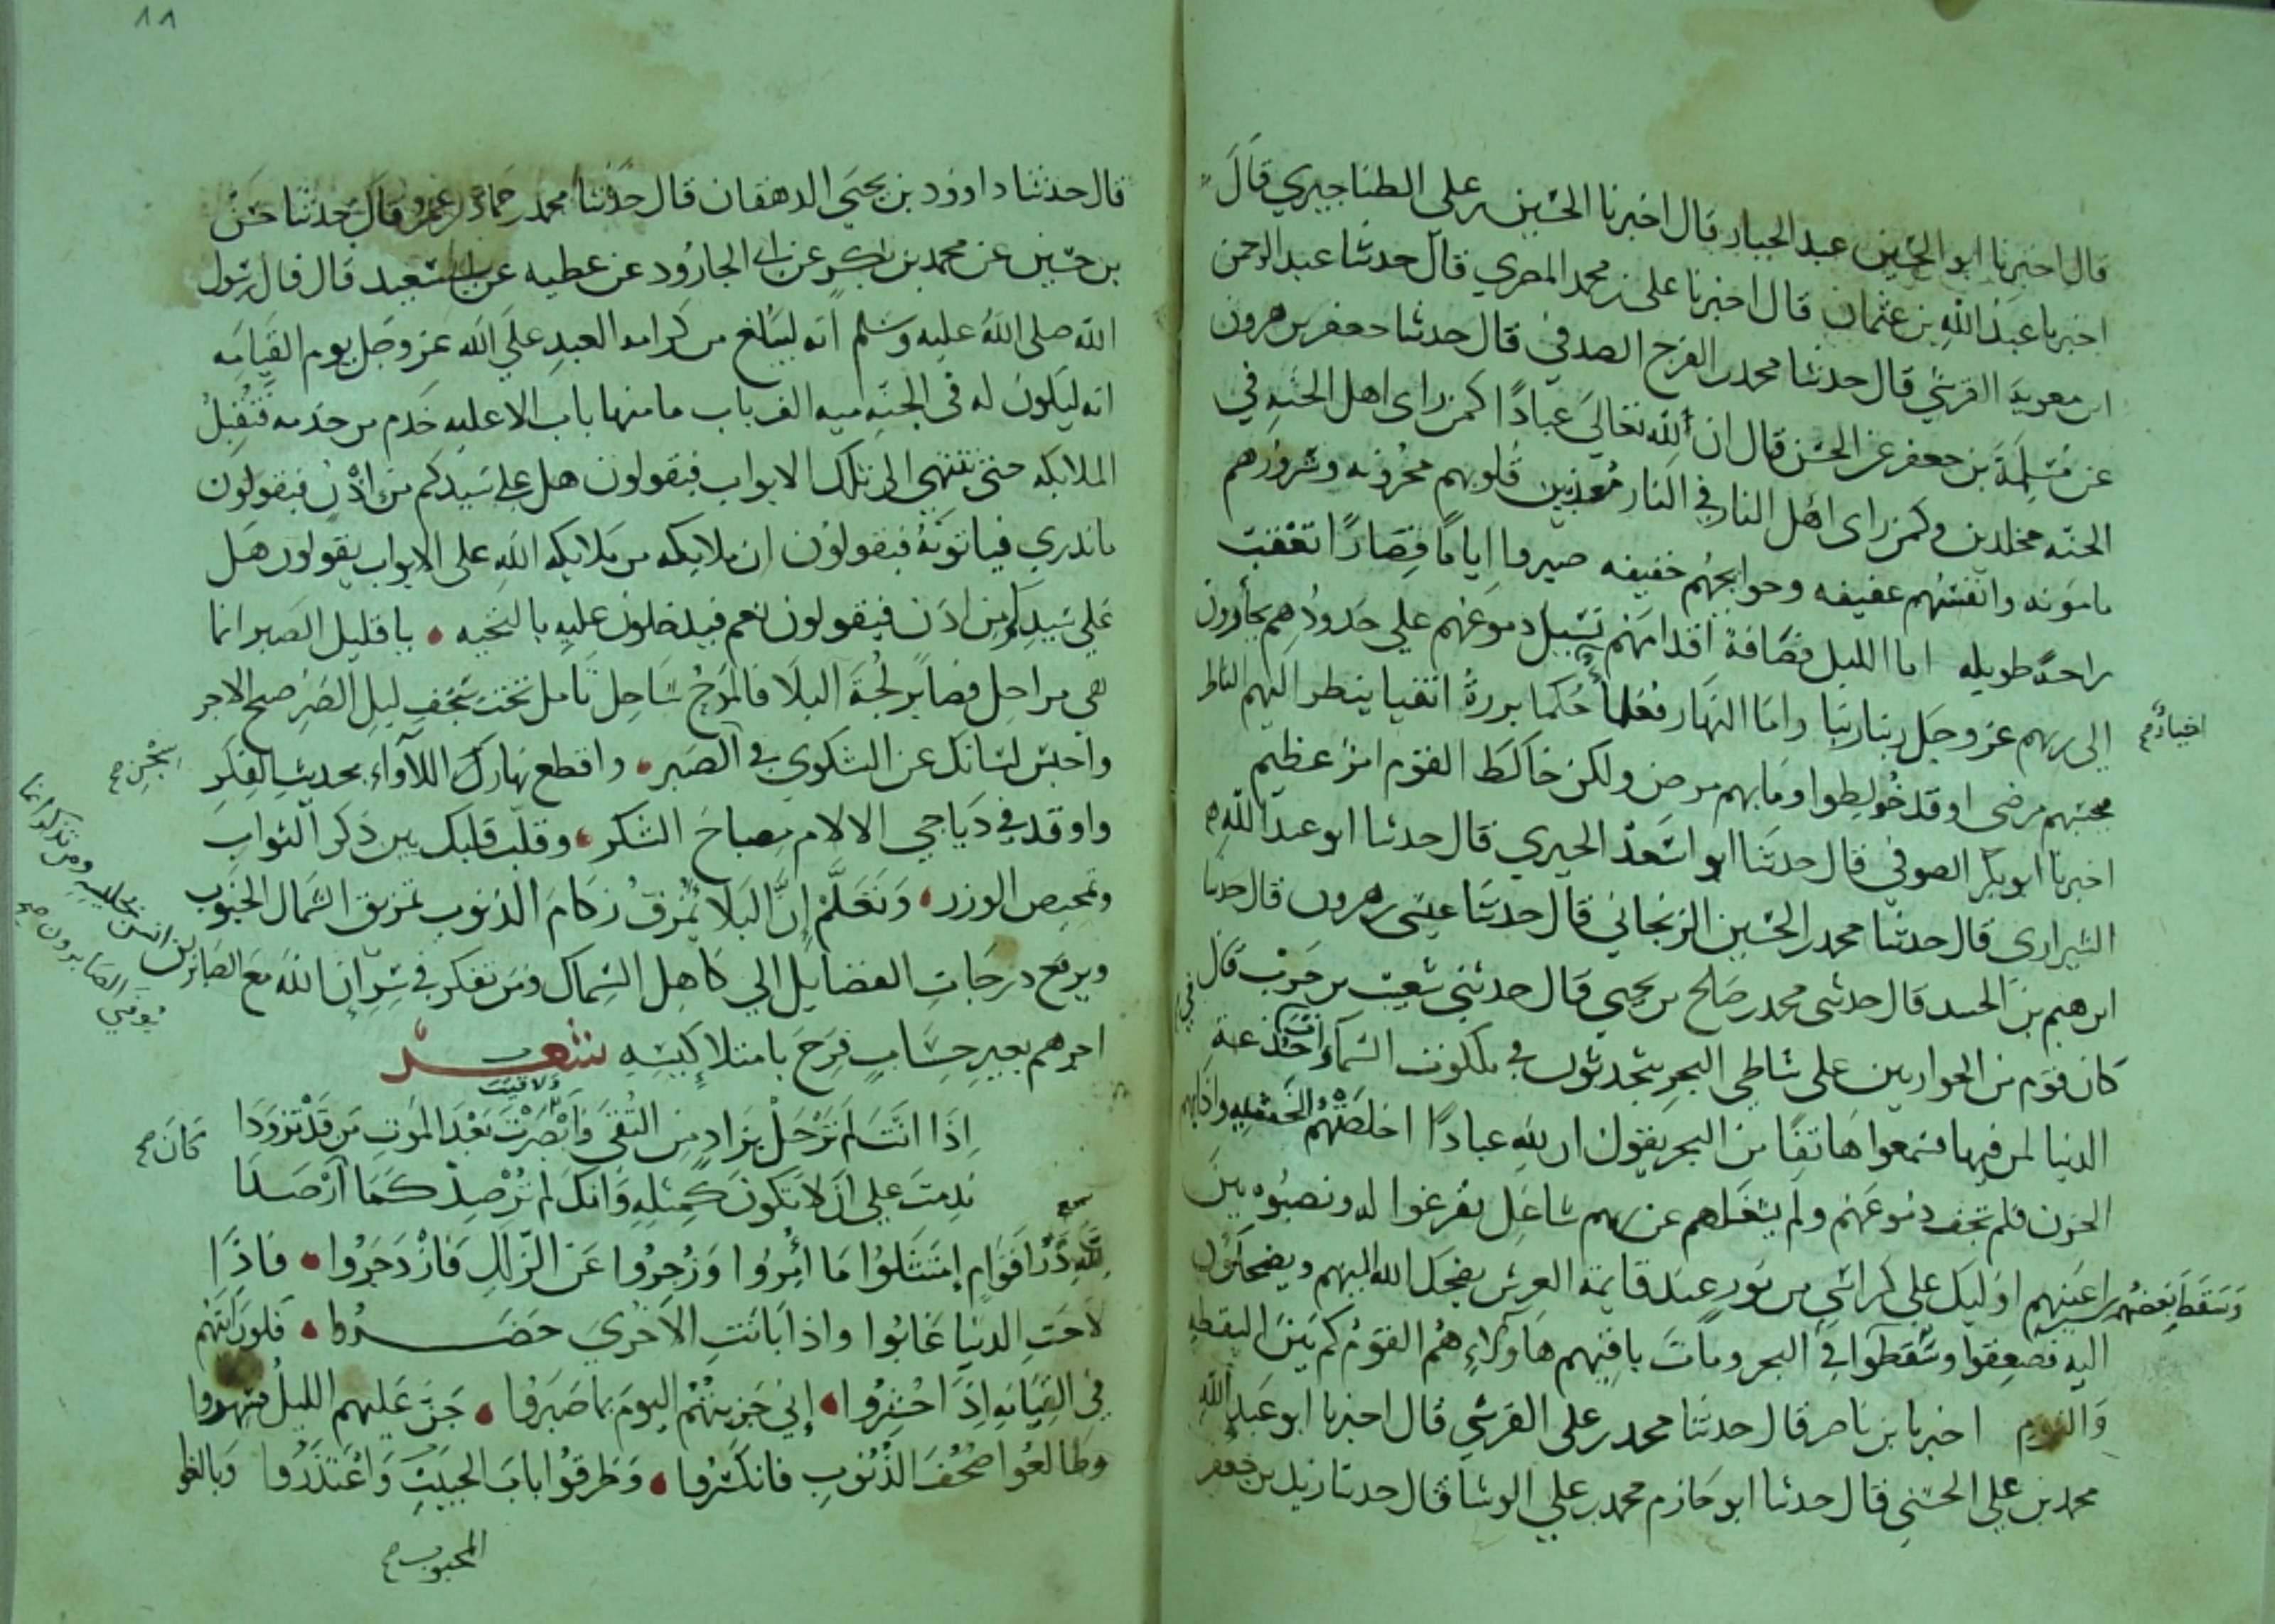 قال اخبرنا ابو الحسين بن عبد الجبار قال اخبرنا الحسين بن على الطناجيري قال
اخبرنا عبد الله بن عثمان قال اخبرنا على بن محمد المصري قال حدثنا عبد الرحمن
ابن معوية القرشي قال حدثنا محمد بن الفرج الصدفي قال حدثنا جعفر بن هرون
عن مسلمة بن جعفر عن الحسن قال ان لله تعالى عبادًا كمن راى اهل الجنه في
الجنه مخلدين وكمن راى اهل النار في النار معذبين قلوبهم محزونه وشرورهم
مامونه وانفسهم عفيفه وحوايجهم خفيفه صبروا اياما قصارًا تعقب
راحة طويله اما الليل فصافة اقدامهم تسيل دموعهم على خدودهم يجأرون
الى ربهم عز وجل ربنا ربنا واما النهار فعلما حُكما بررة اتقيا ينظر اليهم الناظر
فيحسبهم مرضى او قد خولطوا وما بهم مرض ولكن خالط القوم امر عظيم
اخبرنا ابو بكر الصوفي قال حدثنا ابو اسعد الحيري قال حدثنا ابو عبد الله
الشيرازي قال حدثنا محمد بن الحسين الزنجاني قال حدثنا عيسى بن هرون قال حدثنا
ابرهيم بن الجنيد قال حدثني محمد بن صالح بن يحيى قال حدثني شعيب بن حرب قال
كان قوم من الحواريين على شاطي البحر يتحدثون في ملكوت السماء
الدنيا لمن فيها فسمعوا هاتفًا من البحر يقول ان لله عبادًا اخلصتهم الخشية واذابهم
الحزن فلم تجف دموعهم ولم يشغلهم عن ربهم شاغل تفرغوا له ونصبوه بين
اعينهم اوليك على كراسي من نور عند قايمة العرش يضحك الله اليهم ويضحكون
اليه فصعقوا وسقطوا في البحر ومات باقيهم هاولاء هم القوم كم بين اليقظه
والنوم اخبرنا بن ناصر قال حدثنا محمد بن على القرشي قال اخبرنا ابو عبد الله
محمد بن علي الحسني قال حدثنا ابو حازم محمد بن علي الوشا قال حدثنا زيد بن جعفر
اخيارٌ صح
وسقط بعضهم
١١
قال حدثنا داوود بن يحيى الدهقان قال حدثنا محمد بن حماد بن عمرو قال حدثنا حسن
بن حسين عن محمد بن بكر عن ابى الجارود عن عطيه عن ابي سعيد قال قال رسول
الله صلى الله عليه وسلم انه ليبلغ من كرامه العبد على الله عز وجل يوم القيامه
انه ليكون له فى الجنه ميه الف باب ما منها باب الا عليه خدم من خدمه فتقبل
الملايكه حتى تنتهي الى تلك الابواب فيقولون هل على سيدكم من اذن فيقولون
ما ندري فياتونه فيقولون ان ملايكه من ملايكه الله على الابواب يقولون هل
على سيدكم من اذن فيقولون نعم فيدخلون عليه بالتحيه • يا قليل الصبر انما
هي مراحل فصابر لجة البلا فالموج ساحل تامل تحت سجف ليل الصبر صبح الاجر
واحبس لسانك عن الشكوي في الصبر • واقطع نهارك اللأواء بحديث الفكر
واوقد في دياجي الالام مصباح الشكر • وقلّب قلبك بين ذكر الثواب
وتمحيص الوزر • وتعلم إن البلا يُمزق ركام الذنوب تمزيق الشمال الجنوب
ويرفع درجات الفضايل الي كاهل السماك ومن تفكر في سر إن الله مع الصابرين
اجرهم بغير حساب فرح بامتلا كيسه شعر
اِذَا انتَ لَم تَرْحَلْ بزادٍ من التقى وَابْصَرْتَ بَعْدَ الموتِ مَن قَدْ تزوَّدَا
ندمتَ على ان لا تكون كمثله وَانكَ لم تُرْصِدْ كَمَا اَرْصَدَا
لله دَرُّ اقوام إمتثلوا مَا أُمِرُوا وَزُجِروا عَن الزلل فَازْدَجَرُوا • فاذا
لاحَتِ الدنيا غابُوا واذا بانتِ الاخري حضروا • فلو رايتهم
في القيامه اِذَا حُشِرُوا • إني جزيتهم اليوم بما صبروا • جَنَّ عليهم الليل فسهروا
وطالعُوا صُحُفَ الذُنوب فانكسروا • وطرقوا باب الحبيب واعتذروا وبالغو
ولاقيت
كان صح
المحبوب صح